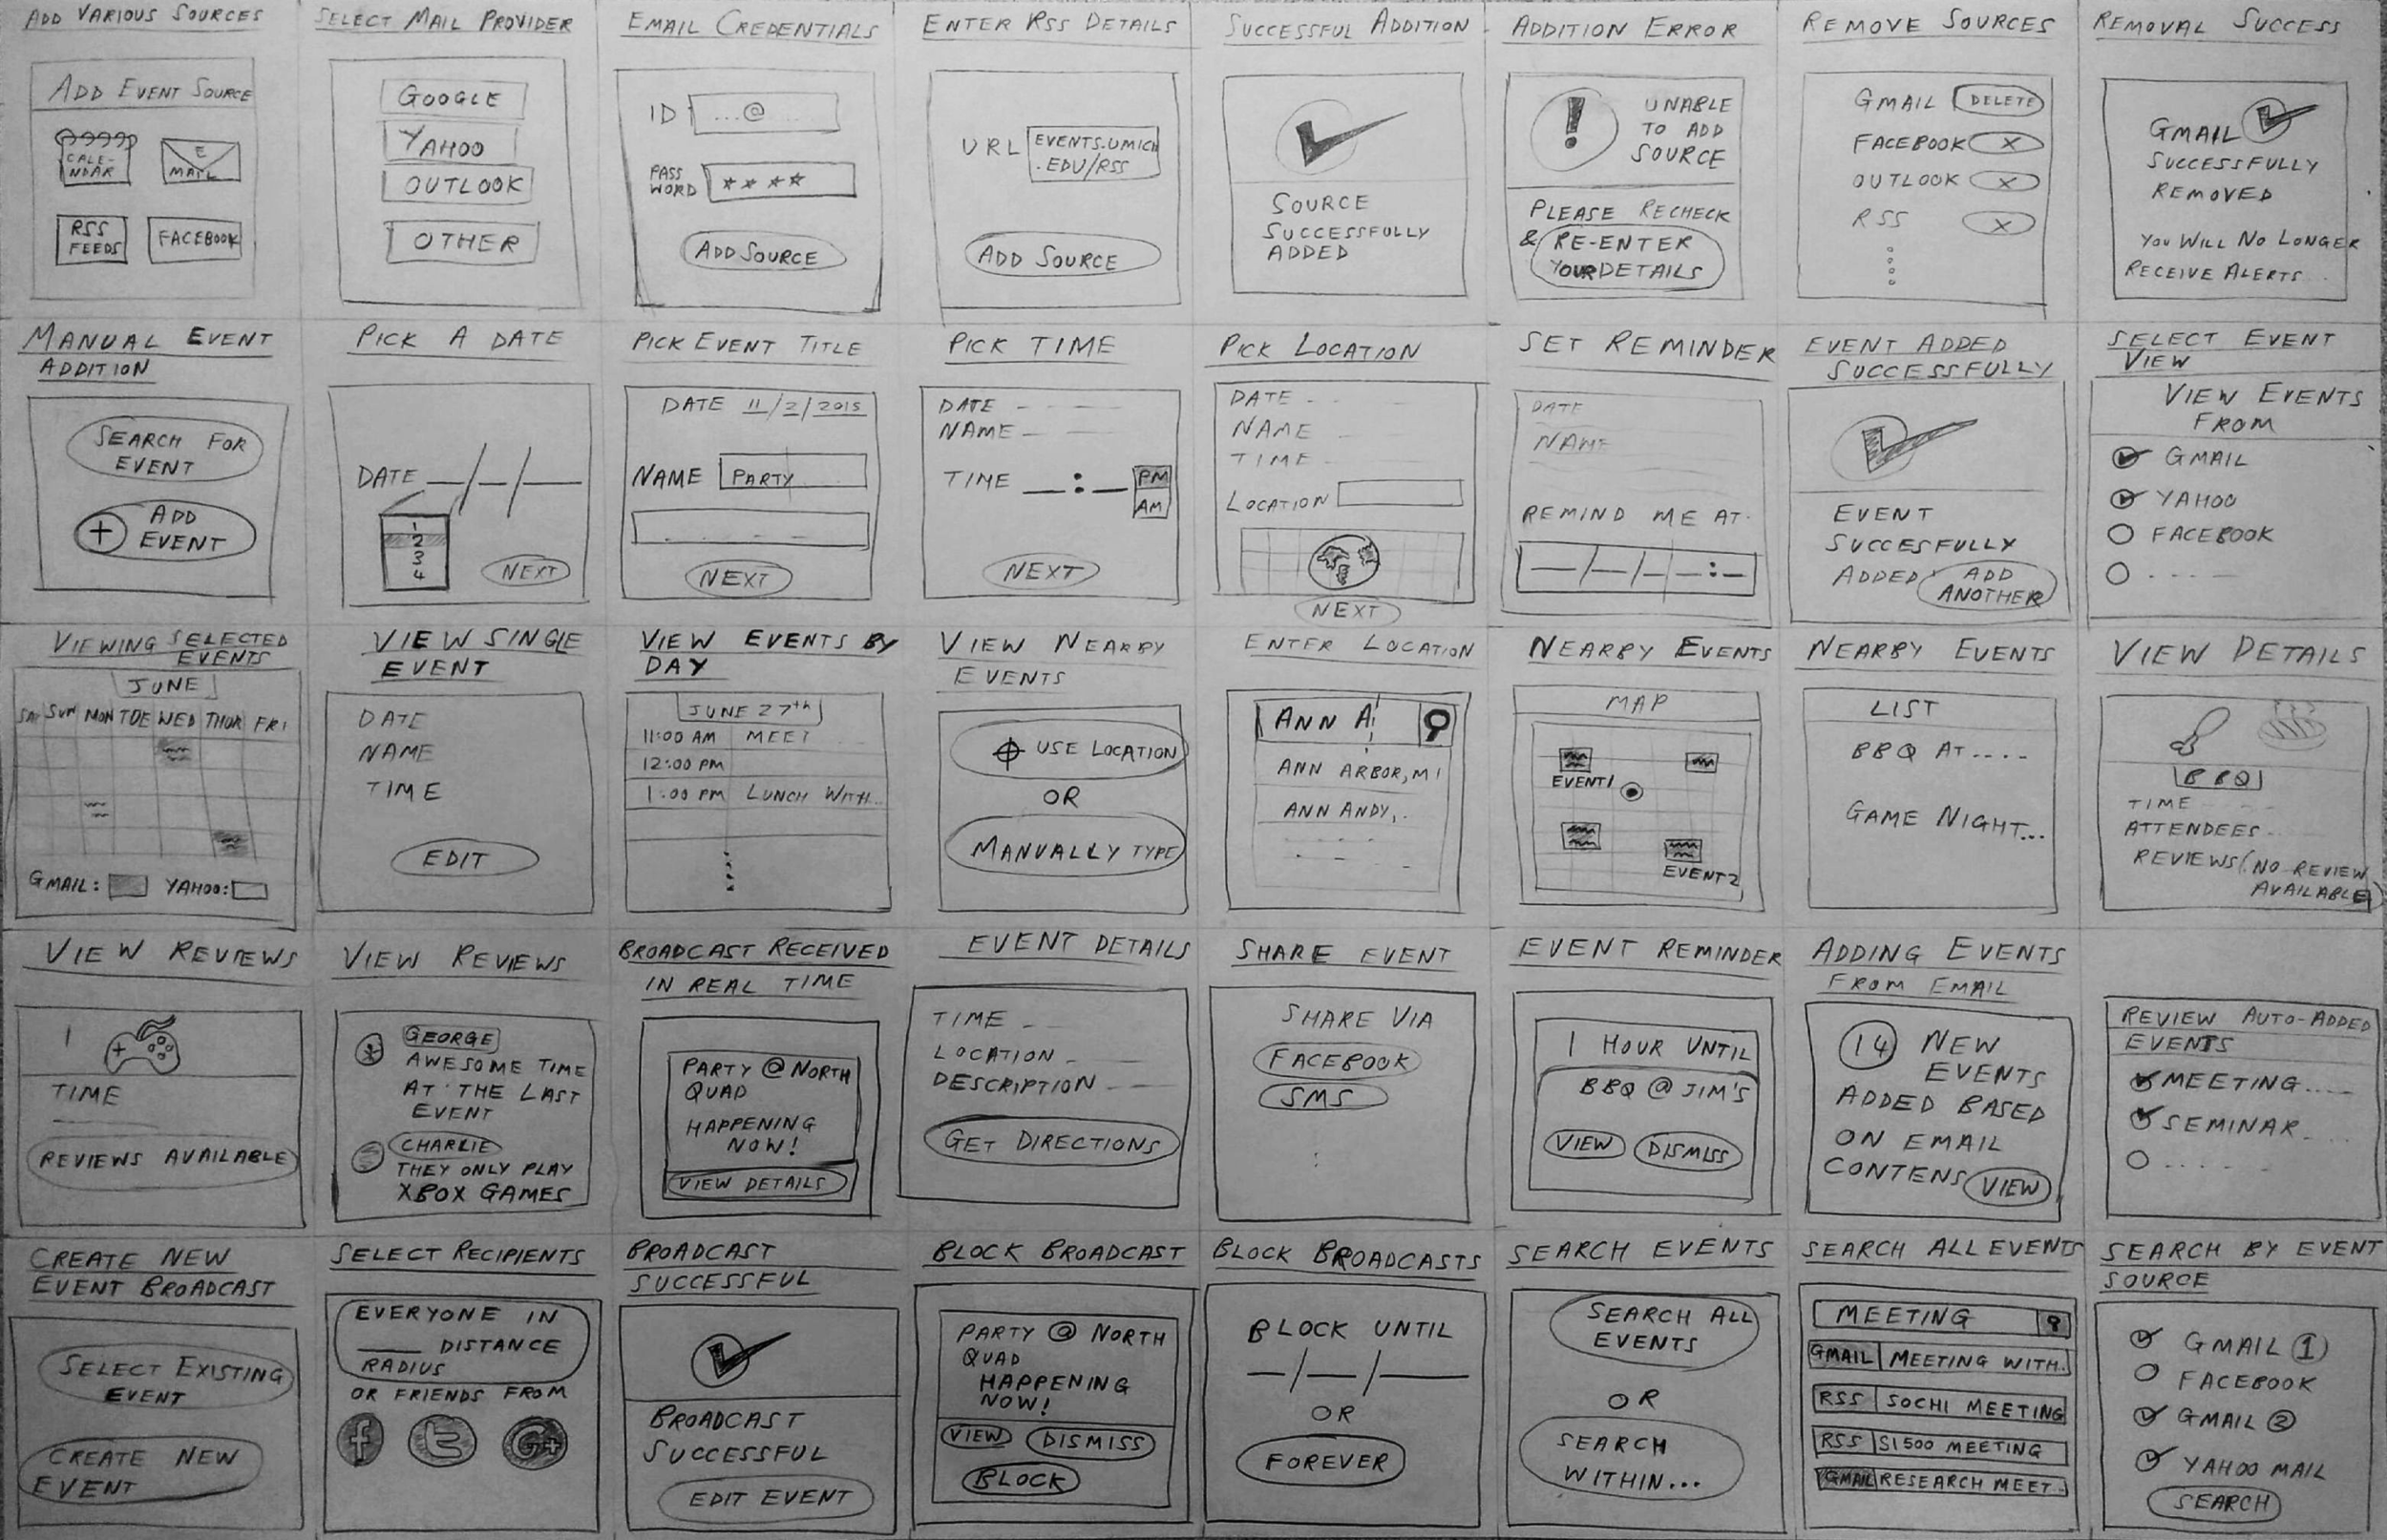 ADD VARIOUS SOURCES
ADD EVENT SOURCE
CALE-
NDAR
E
MAIL
RSS
FEEDS
FACEBOOK
SELECT MAIL PROVIDER
GOOGLE
YAHOO
OUTLOOK
OTHER
EMAIL CREDENTIALS
ID ...@
PASS
WORD ****
ADD SOURCE
ENTER RSS DETAILS
URL EVENTS.UMICH
.EDU/RSS
ADD SOURCE
SUCCESSFUL ADDITION
SOURCE
SUCCESSFULLY
ADDED
ADDITION ERROR
!
UNABLE
TO ADD
SOURCE
PLEASE RECHECK
& RE-ENTER
YOUR DETAILS
REMOVE SOURCES
GMAIL DELETE
FACEBOOK X
OUTLOOK X
RSS X
REMOVAL SUCCESS
GMAIL
SUCCESSFULLY
REMOVED
YOU WILL NO LONGER
RECEIVE ALERTS...
MANUAL EVENT
ADDITION
SEARCH FOR
EVENT
+ ADD
EVENT
PICK A DATE
DATE __/__/__
1
2
3
4
NEXT
PICK EVENT TITLE
DATE 11/2/2015
NAME PARTY
NEXT
PICK TIME
DATE
NAME
TIME __:__ PM
AM
NEXT
PICK LOCATION
DATE
NAME
TIME
LOCATION
NEXT
SET REMINDER
DATE
NAME
REMIND ME AT
__/__/__ __:__
EVENT ADDED
SUCCESSFULLY
EVENT
SUCCESFULLY
ADDED ADD
ANOTHER
SELECT EVENT
VIEW
VIEW EVENTS
FROM
GMAIL
YAHOO
FACEBOOK
VIEWING SELECTED
EVENTS
JUNE
SAT SUN MON TUE WED THUR FRI
GMAIL: YAHOO:
VIEW SINGLE
EVENT
DATE
NAME
TIME
EDIT
VIEW EVENTS BY
DAY
JUNE 27th
11:00 AM MEET
12:00 PM
1:00 PM LUNCH WITH...
VIEW NEARBY
EVENTS
USE LOCATION
OR
MANUALLY TYPE
ENTER LOCATION
ANN A
ANN ARBOR, MI
ANN ANDY,.
NEARBY EVENTS
MAP
EVENT1
EVENT2
NEARBY EVENTS
LIST
BBQ AT....
GAME NIGHT...
VIEW DETAILS
BBQ
TIME
ATTENDEES
REVIEWS (NO REVIEW
AVAILABLE)
VIEW REVIEWS
TIME
REVIEWS AVAILABLE
VIEW REVIEWS
GEORGE
AWESOME TIME
AT THE LAST
EVENT
CHARLIE
THEY ONLY PLAY
XBOX GAMES
BROADCAST RECEIVED
IN REAL TIME
PARTY @ NORTH
QUAD
HAPPENING
NOW!
VIEW DETAILS
EVENT DETAILS
TIME
LOCATION
DESCRIPTION
GET DIRECTIONS
SHARE EVENT
SHARE VIA
FACEBOOK
SMS
EVENT REMINDER
1 HOUR UNTIL
BBQ @ JIM'S
VIEW DISMISS
ADDING EVENTS
FROM EMAIL
14 NEW
EVENTS
ADDED BASED
ON EMAIL
CONTENS VIEW
REVIEW AUTO-ADDED
EVENTS
MEETING....
SEMINAR....
CREATE NEW
EVENT BROADCAST
SELECT EXISTING
EVENT
CREATE NEW
EVENT
SELECT RECIPIENTS
EVERYONE IN
____ DISTANCE
RADIUS
OR FRIENDS FROM
f t G+
BROADCAST
SUCCESSFUL
BROADCAST
SUCCESSFUL
EDIT EVENT
BLOCK BROADCAST
PARTY @ NORTH
QUAD
HAPPENING
NOW!
VIEW DISMISS
BLOCK
BLOCK BROADCASTS
BLOCK UNTIL
__/__/____
OR
FOREVER
SEARCH EVENTS
SEARCH ALL
EVENTS
OR
SEARCH
WITHIN...
SEARCH ALL EVENTS
MEETING
GMAIL MEETING WITH..
RSS SOCHI MEETING
RSS SI500 MEETING
GMAIL RESEARCH MEET..
SEARCH BY EVENT
SOURCE
GMAIL 1
FACEBOOK
GMAIL 2
YAHOO MAIL
SEARCH